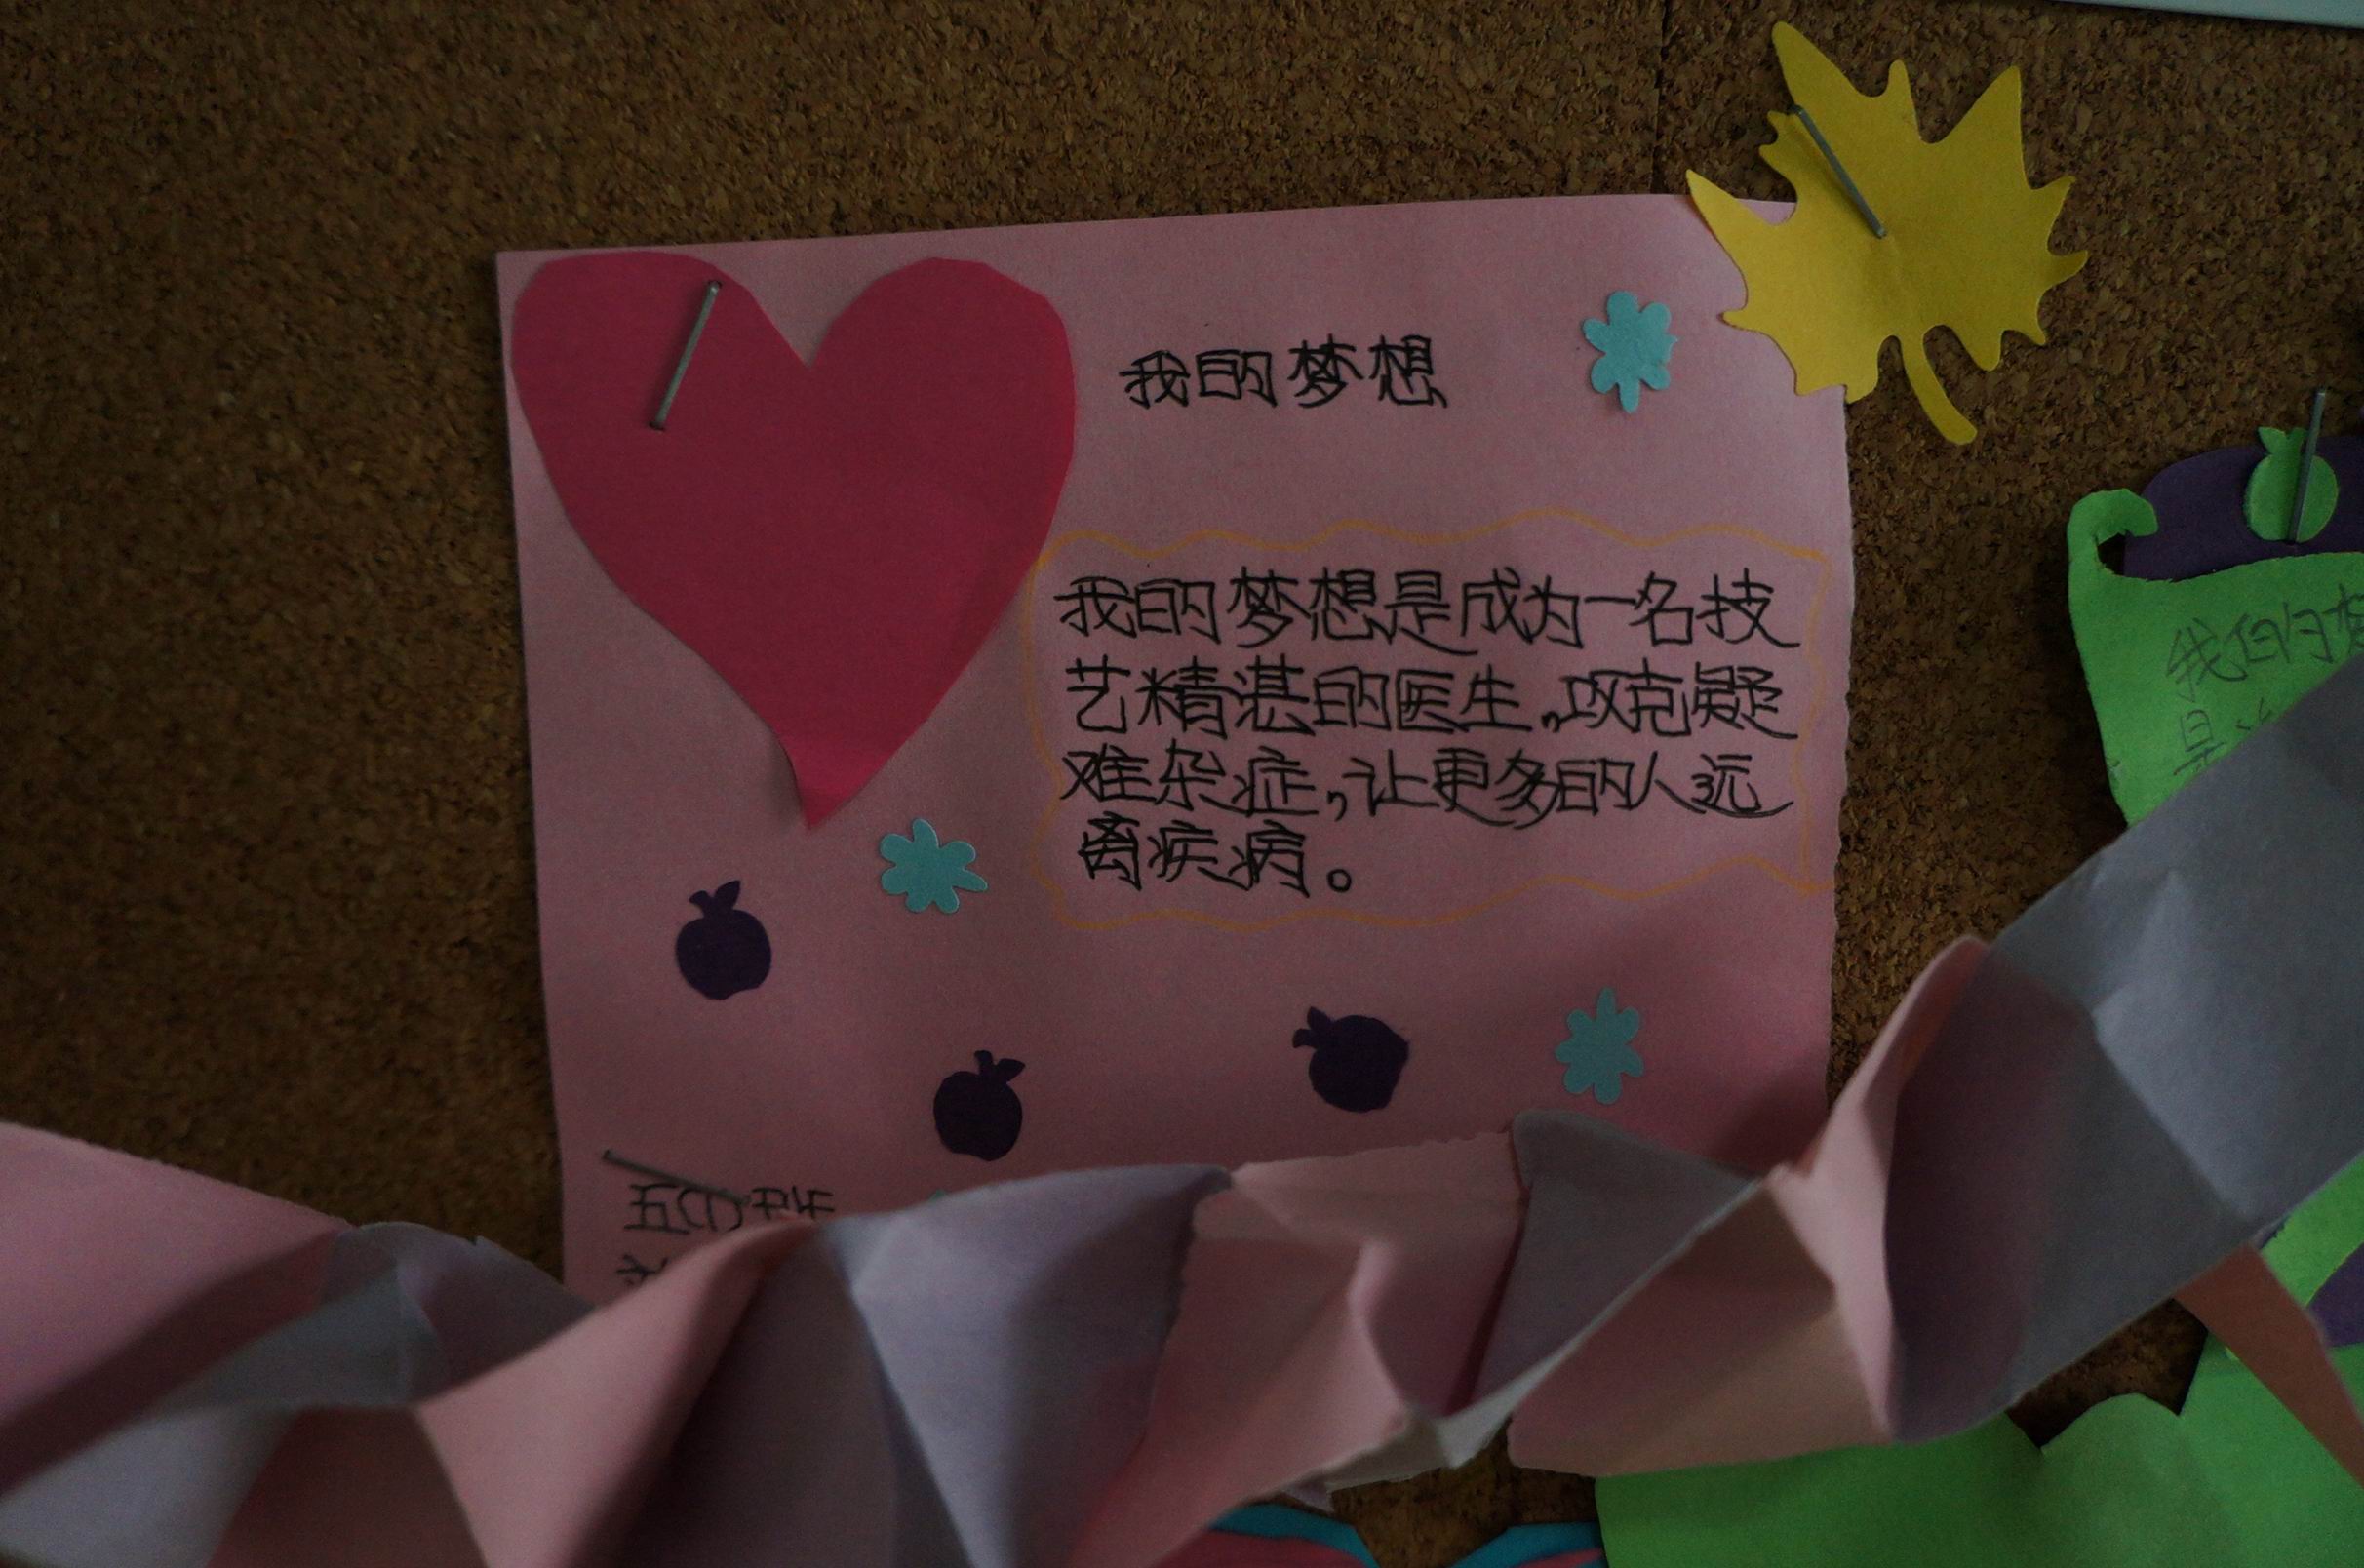 我的梦想
我的梦想是成为一名技
艺精湛的医生,攻克疑
难杂症,让更多的人远
离疾病。
我的梦
是